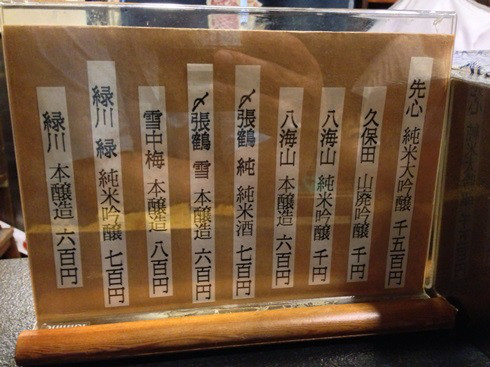 先心 純米大吟醸 千五百円
久保田 山廃吟醸 千円
八海山 純米吟醸 千円
八海山 本醸造 六百円
〆張鶴 純 純米酒 七百円
〆張鶴 雪 本醸造 六百円
雪中梅 本醸造 八百円
緑川 緑 純米吟醸 七百円
緑川 本醸造 六百円